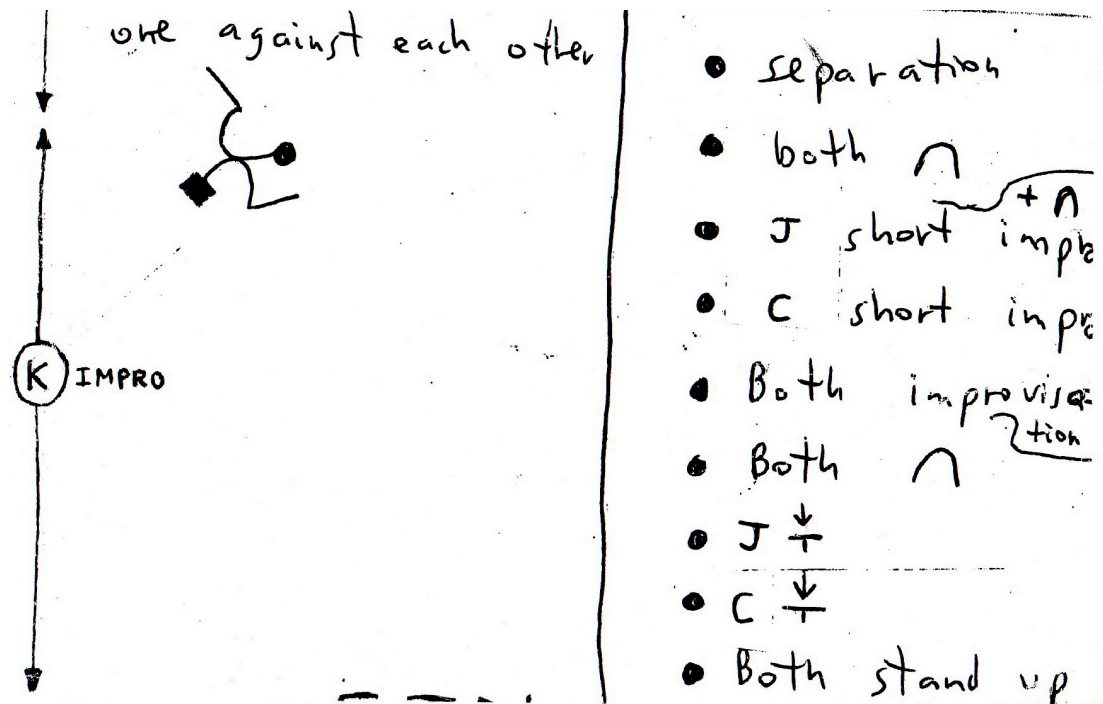 one against each other
K IMPRO
separation
both
+
J short impr
C short impr
Both improvisa-
tion
Both
J
C
Both stand up